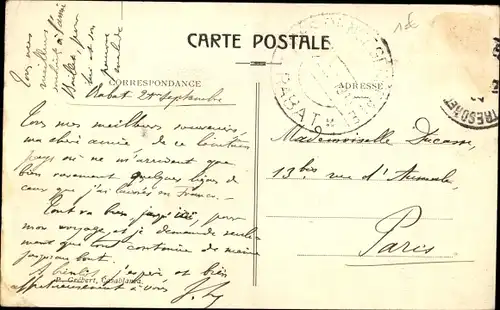 CARTE POSTALE
CORRESPONDANCE
ADRESSE
Rabat 2 Septembre
Tous mes meilleurs souvenirs,
ma chère amie, de ce lointain
pays où ne m'arrivent que
bien rarement quelques lignes de
ceux que j'ai laissés en France.
Tout va bien jusqu'ici, pour
mon voyage, et je demande seule-
ment que tout continue de même
jusqu'au bout.
A bientôt, j'espère et bien
affectueusement à vous
P. Grébert, Casablanca
Mademoiselle Ducasse
13 bis rue d'Aumale
Paris
RABAT
TRESOR ET